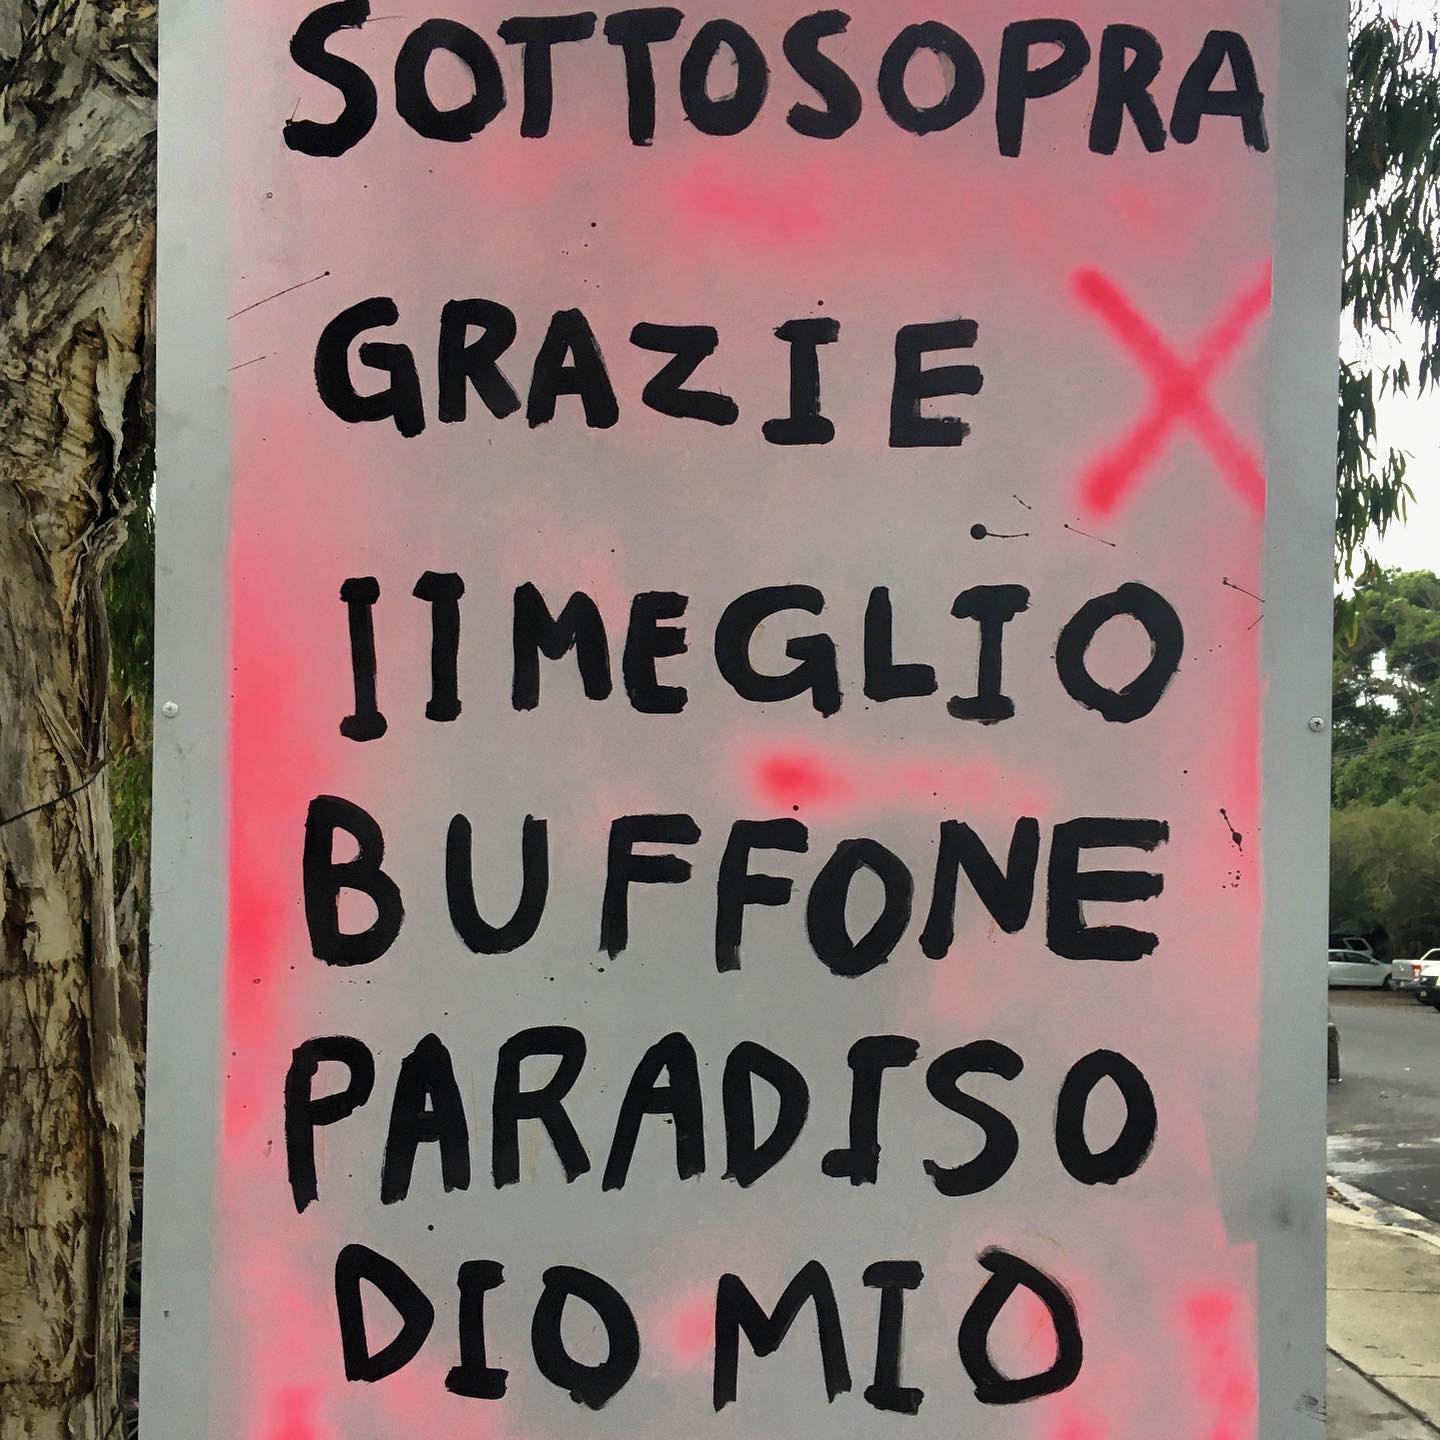 SOTTOSOPRA
GRAZIE X
II MEGLIO
BUFFONE
PARADISO
DIO MIO